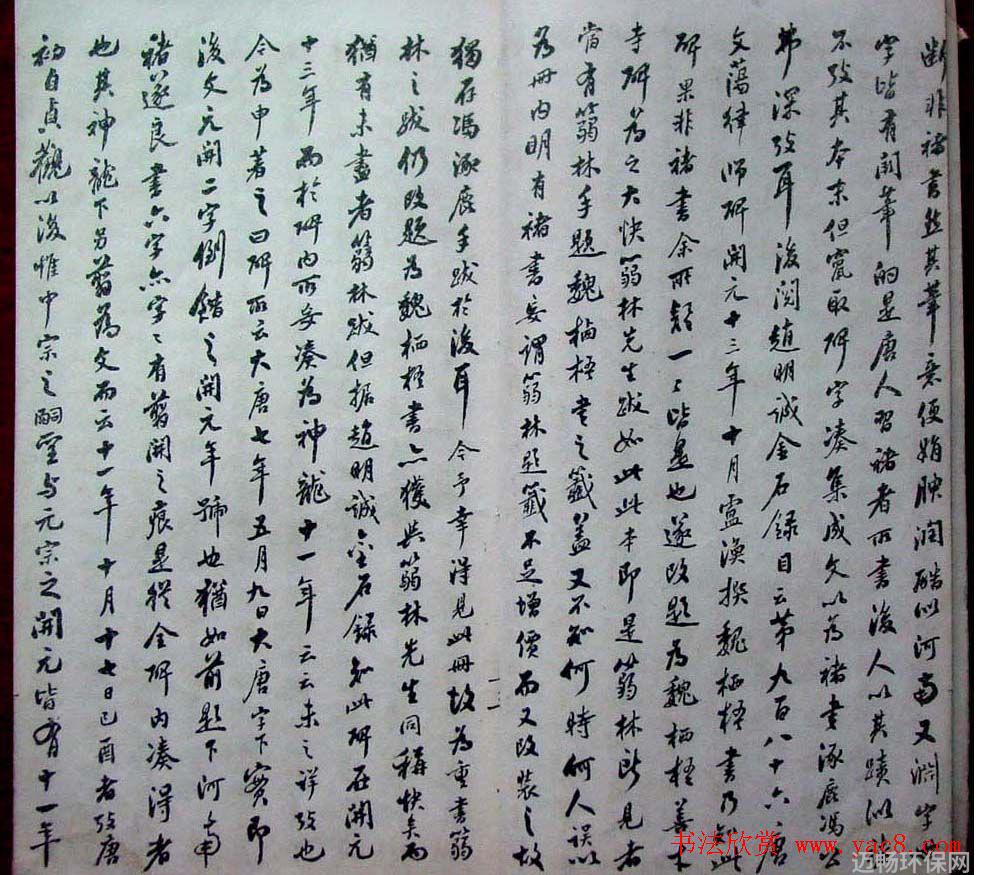 断非褚书然其筆意便娟腴润酷似河南又渊字
字皆有闕筆的是唐人習褚者所書後人以其蹟似褚
不攷其本末但寬取碑字凑集成文以為褚書涿鹿馮公
弗深攷耳後閱趙明誠金石録目云第九百八十六唐
文蕩律師碑開元十三年十月盧渙撰魏栖梧書乃知此
碑果非褚書余所疑一〻皆是也遂改題為魏栖梧善才
寺碑為之大快蒻林先生跋如此此本即是蒻林所見者
當有蒻林手題魏栖梧書之籤蓋又不知何時何人誤以
為冊内明有褚書妄謂蒻林題籤不足增價而又改装之故
獨存馮涿鹿手跋於後耳今予幸得見此冊故為重書蒻
林之跋仍改題為魏栖梧書亦獲與蒻林先生同稱快矣而
猶有未盡者蒻林跋但据趙明誠金石録知此碑在開元
十三年而於碑内所妄凑為神龍十一年云云未之详攷也
今為申著之曰碑所云大唐七年五月九日大唐字下實即
後文元開二字倒錯之開元年號也猶如前題下河南
褚遂良書六字亦字〻有剪開之痕是從全碑内凑得者
也其神龍下另剪為文而云十一年十月十七日己酉者攷唐
初自貞觀以後惟中宗之嗣聖与元宗之開元皆有十一年
一二
书法欣赏
www.yac8.com
迈畅环保网